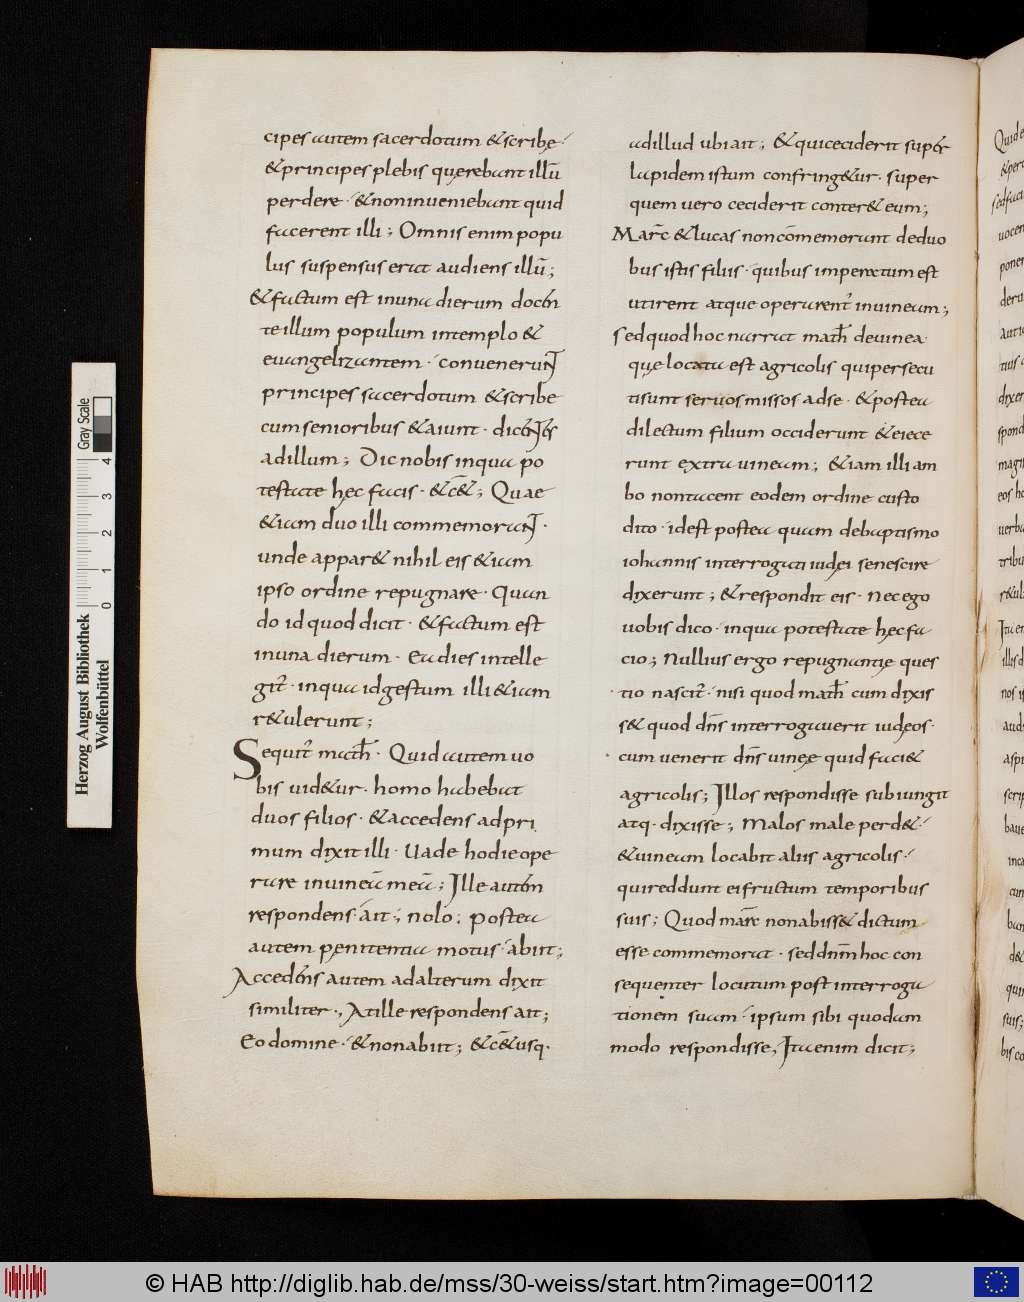 cipes autem sacerdotum & scribę
& principes plebis quęrebant illū
perdere · & non inueniebant quid
facerent illi ; Omnis enim popu
lus suspensus erat audiens illū ;
& factum est in una dierum docen
te illum populum in templo &
euangelizantem · conuenerunt
principes sacerdotum & scribe
cum senioribus & aiunt · dicentes
ad illum ; Dic nobis in qua po
testate hęc facis · & c&̄ ; Quae
& iam duo illi commemorant ·
unde appar& nihil eis & iam
ipso ordine repugnare · Quan
do id quod dicit · & factum est
in una dierum · Ea dies intelle
git̄ · in qua id gestum illi & iam
r&ulerunt ;
Sequit̄ math̄ · Quid autem uo
bis uid&ur · homo habebat
duos filios · & accedens ad pri
mum dixit illi · Uade hodie ope
rare in uineā meā ; Ille autem
respondens · ait ; nolo ; postea
autem pęnitentia motus · abiit ;
Accedens autem ad alterum dixit
similiter ·, At ille respondens ait ;
Eo domine · & non abiit ; & c&̄ usq·
ad illud ubi ait ; & qui ceciderit super
lapidem istum confring&ur · super
quem uero ceciderit conter& eum ;
Marc̄ & lucas non cōmemorant de duo
bus istis filiis · quibus imperatum est
ut irent atque operarent̄ in uineam ;
sed quod hoc narrat math̄ de uinea
quę locata est agricolis qui persecu
ti sunt seruos missos ad se · & postea
dilectum filium occiderunt & eiece
runt extra uineam ; & iam illi am
bo non tacent eodem ordine custo
dito · id est postea quam de baptismo
iohannis interrogati iudęi se nescire
dixerunt ; & respondit eis · Nec ego
uobis dico · in qua potestate hęc fa
cio ; Nullius ergo repugnantię ques
tio nascit̄ · nisi quod math̄ cum dixis
s& quod dn̄s interrogauerit iudęos ·
cum uenerit dn̄s uineę quid faci&
agricolis ; Illos respondisse subiungit
atq· dixisse ; Malos male perd& ·
& uineam locabit aliis agricolis ·
qui reddunt ei fructum temporibus
suis ; Quod marc̄ non abiss& dictum
esse commemorat · sed dn̄m hoc con
sequenter locutum post interroga
tionem suam · ipsum sibi quodam
modo respondisse, Ita enim dicit ;
Herzog August Bibliothek
Wolfenbüttel
Gray Scale
0 1 2 3 4
© HAB http://diglib.hab.de/mss/30-weiss/start.htm?image=00112